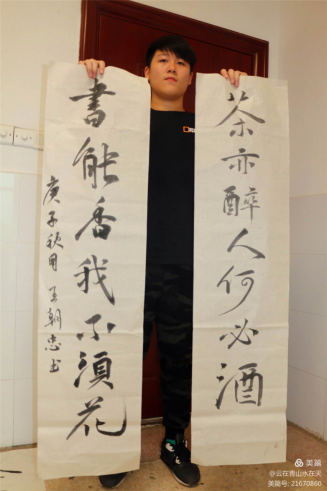 茶亦醉人何必酒
書能香我不須花
庚子秋月 王朝忠书
美篇
@云在青山水在天
美篇号: 21670860